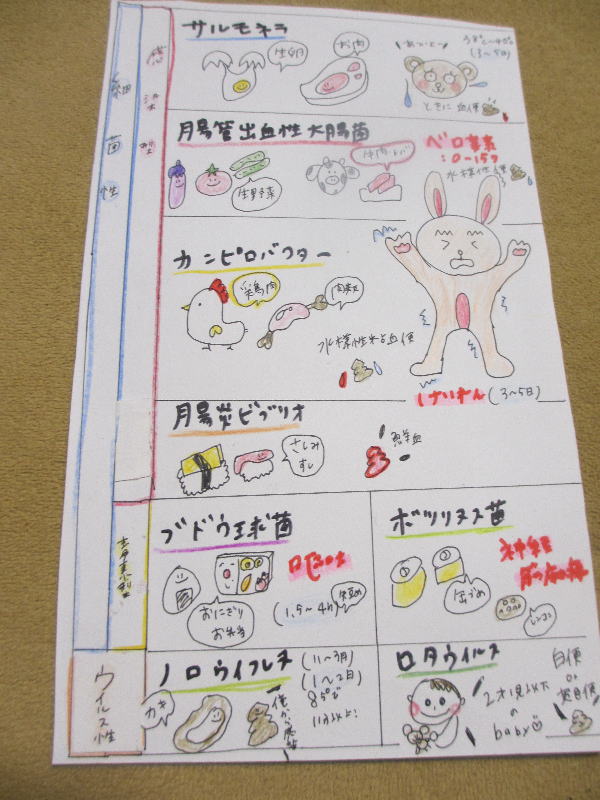 サルモネラ
生卵
お肉
38℃〜40℃
(3〜5日)
ときに血便
細菌性
感染型
腸管出血性大腸菌
生野菜
牛肉・レバー
ベロ毒素
:O-157
水様性
カンピロバクター
鶏肉
水様性ときに血便
けいれん(3〜5日)
腸炎ビブリオ
さしみ
すし
毒素型
ブドウ球菌
おにぎり
お弁当
(1.5〜4h)
短め
ボツリヌス菌
神経
缶づめ
レンコン
ウイルス性
ノロウイルス
(11〜3月)
(1〜2日)
85℃で
1分以上!
カキ
ロタウイルス
2才児以下
の
baby
白便
or
黄色便